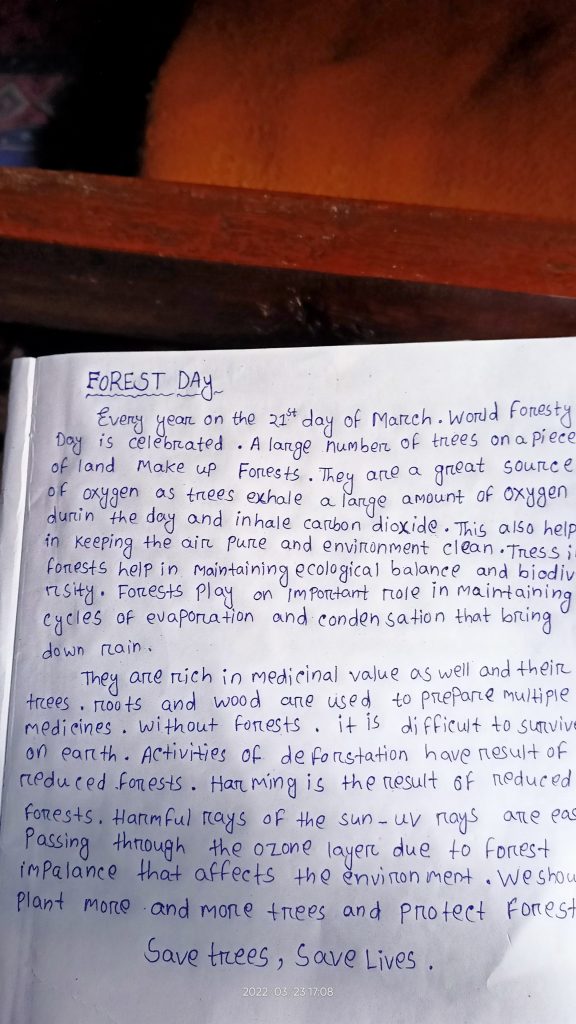 FOREST DAY
Every year on the 21st day of March. World Foresty
Day is celebrated. A large number of trees on a piece
of land Make up Forests. They are a great source
of oxygen as trees exhale a large amount of oxygen
durin the day and inhale carbon dioxide. This also help
in keeping the air pure and environment clean. Tress i
forests help in Maintaining ecological balance and biodiv
rsity. Forests Play on Important role in maintaining
cycles of evaporation and condensation that bring
down rain.
They are rich in medicinal value as well and their
trees. roots and wood are used to prepare multiple
medicines. without forests. it is difficult to survive
on earth. Activities of deforstation have result of
reduced forests. Harming is the result of reduced
Forests. Harmful rays of the sun-uv rays are eas
Passing through the ozone layer due to forest
impalance that affects the environment. We shou
Plant more and more trees and protect Forest
Save trees, Save Lives.
2022.03.23 17:08